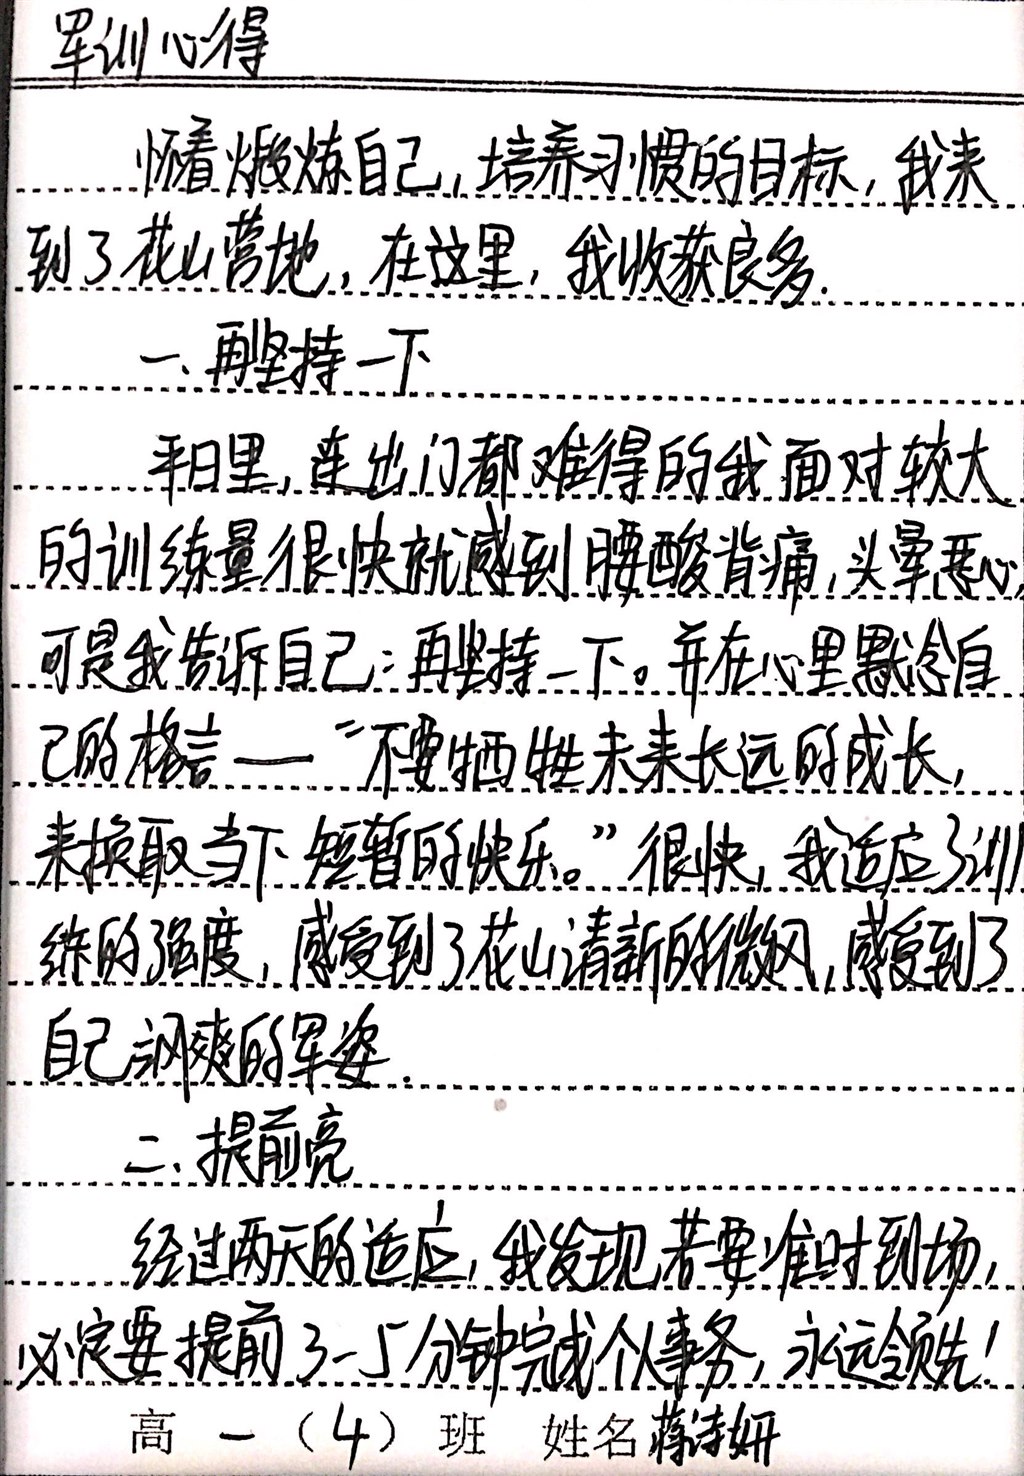 军训心得
怀着煅炼自己，培养习惯的目标，我来
到了花山营地，在这里，我收获良多.
一、再坚持一下
平日里，连出门都难得的我面对较大
的训练量很快就感到腰酸背痛，头晕恶心，
可是我告诉自己：再坚持一下。并在心里默念自
己的格言——“不要牺牲未来长远的成长，
来换取当下短暂的快乐。”很快，我适应了训
练的强度，感受到了花山清新的微风，感受到了
自己飒爽的军姿.
二、提前亮
经过两天的适应，我发现若要准时到场，
必定要提前3-5分钟完成个人事务，永远领先！
高一（4）班 姓名 蒋诗妍